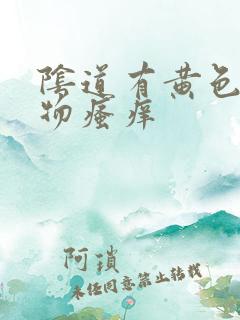 陰道有黄色
物瘙痒
阿瑣
未经同意禁止转载